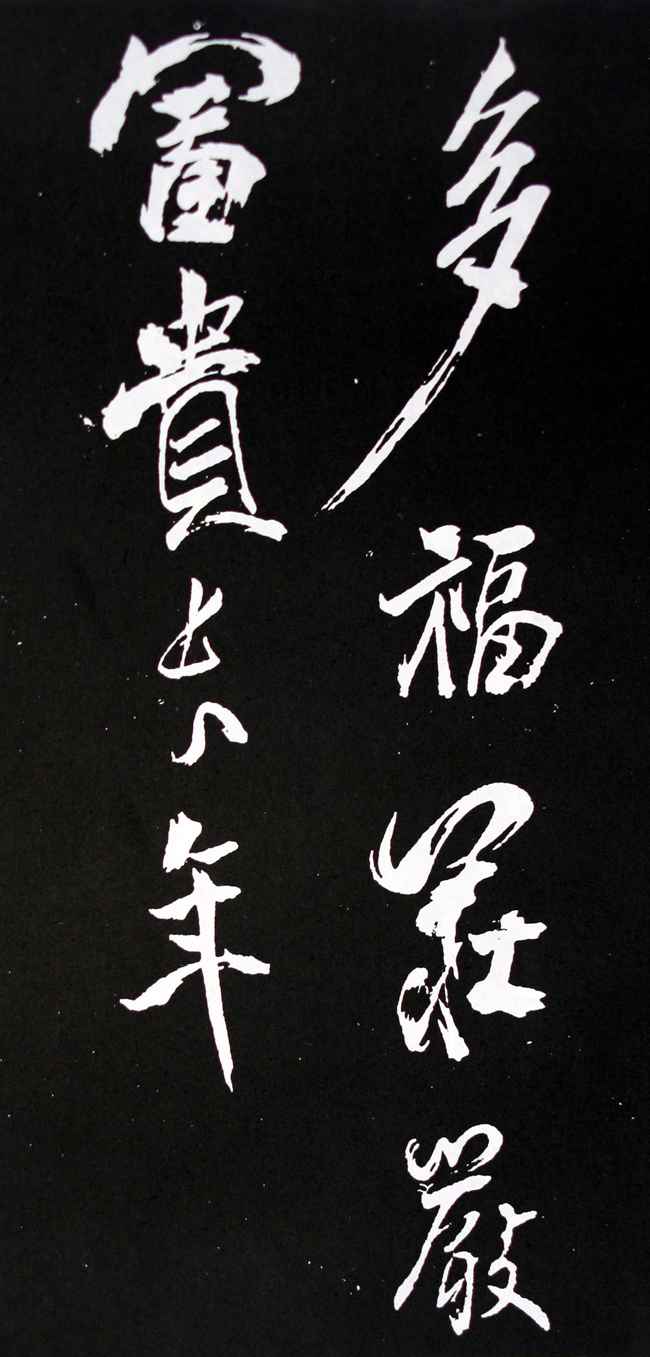 多福莊嚴
富貴年